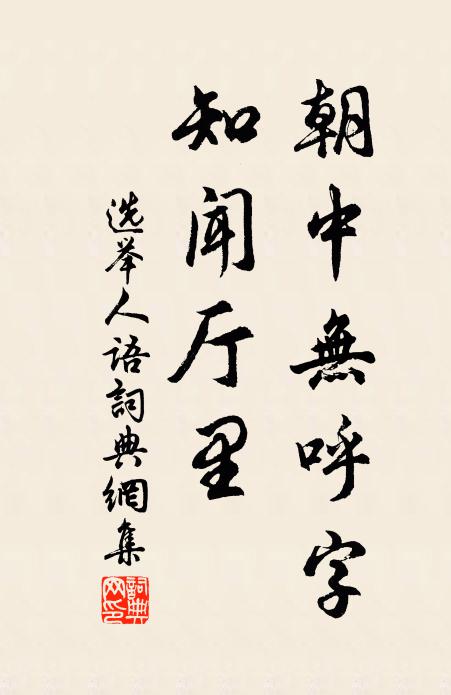 朝中無呼字
知闻厅里
选举人语詞典網集
詞典网印